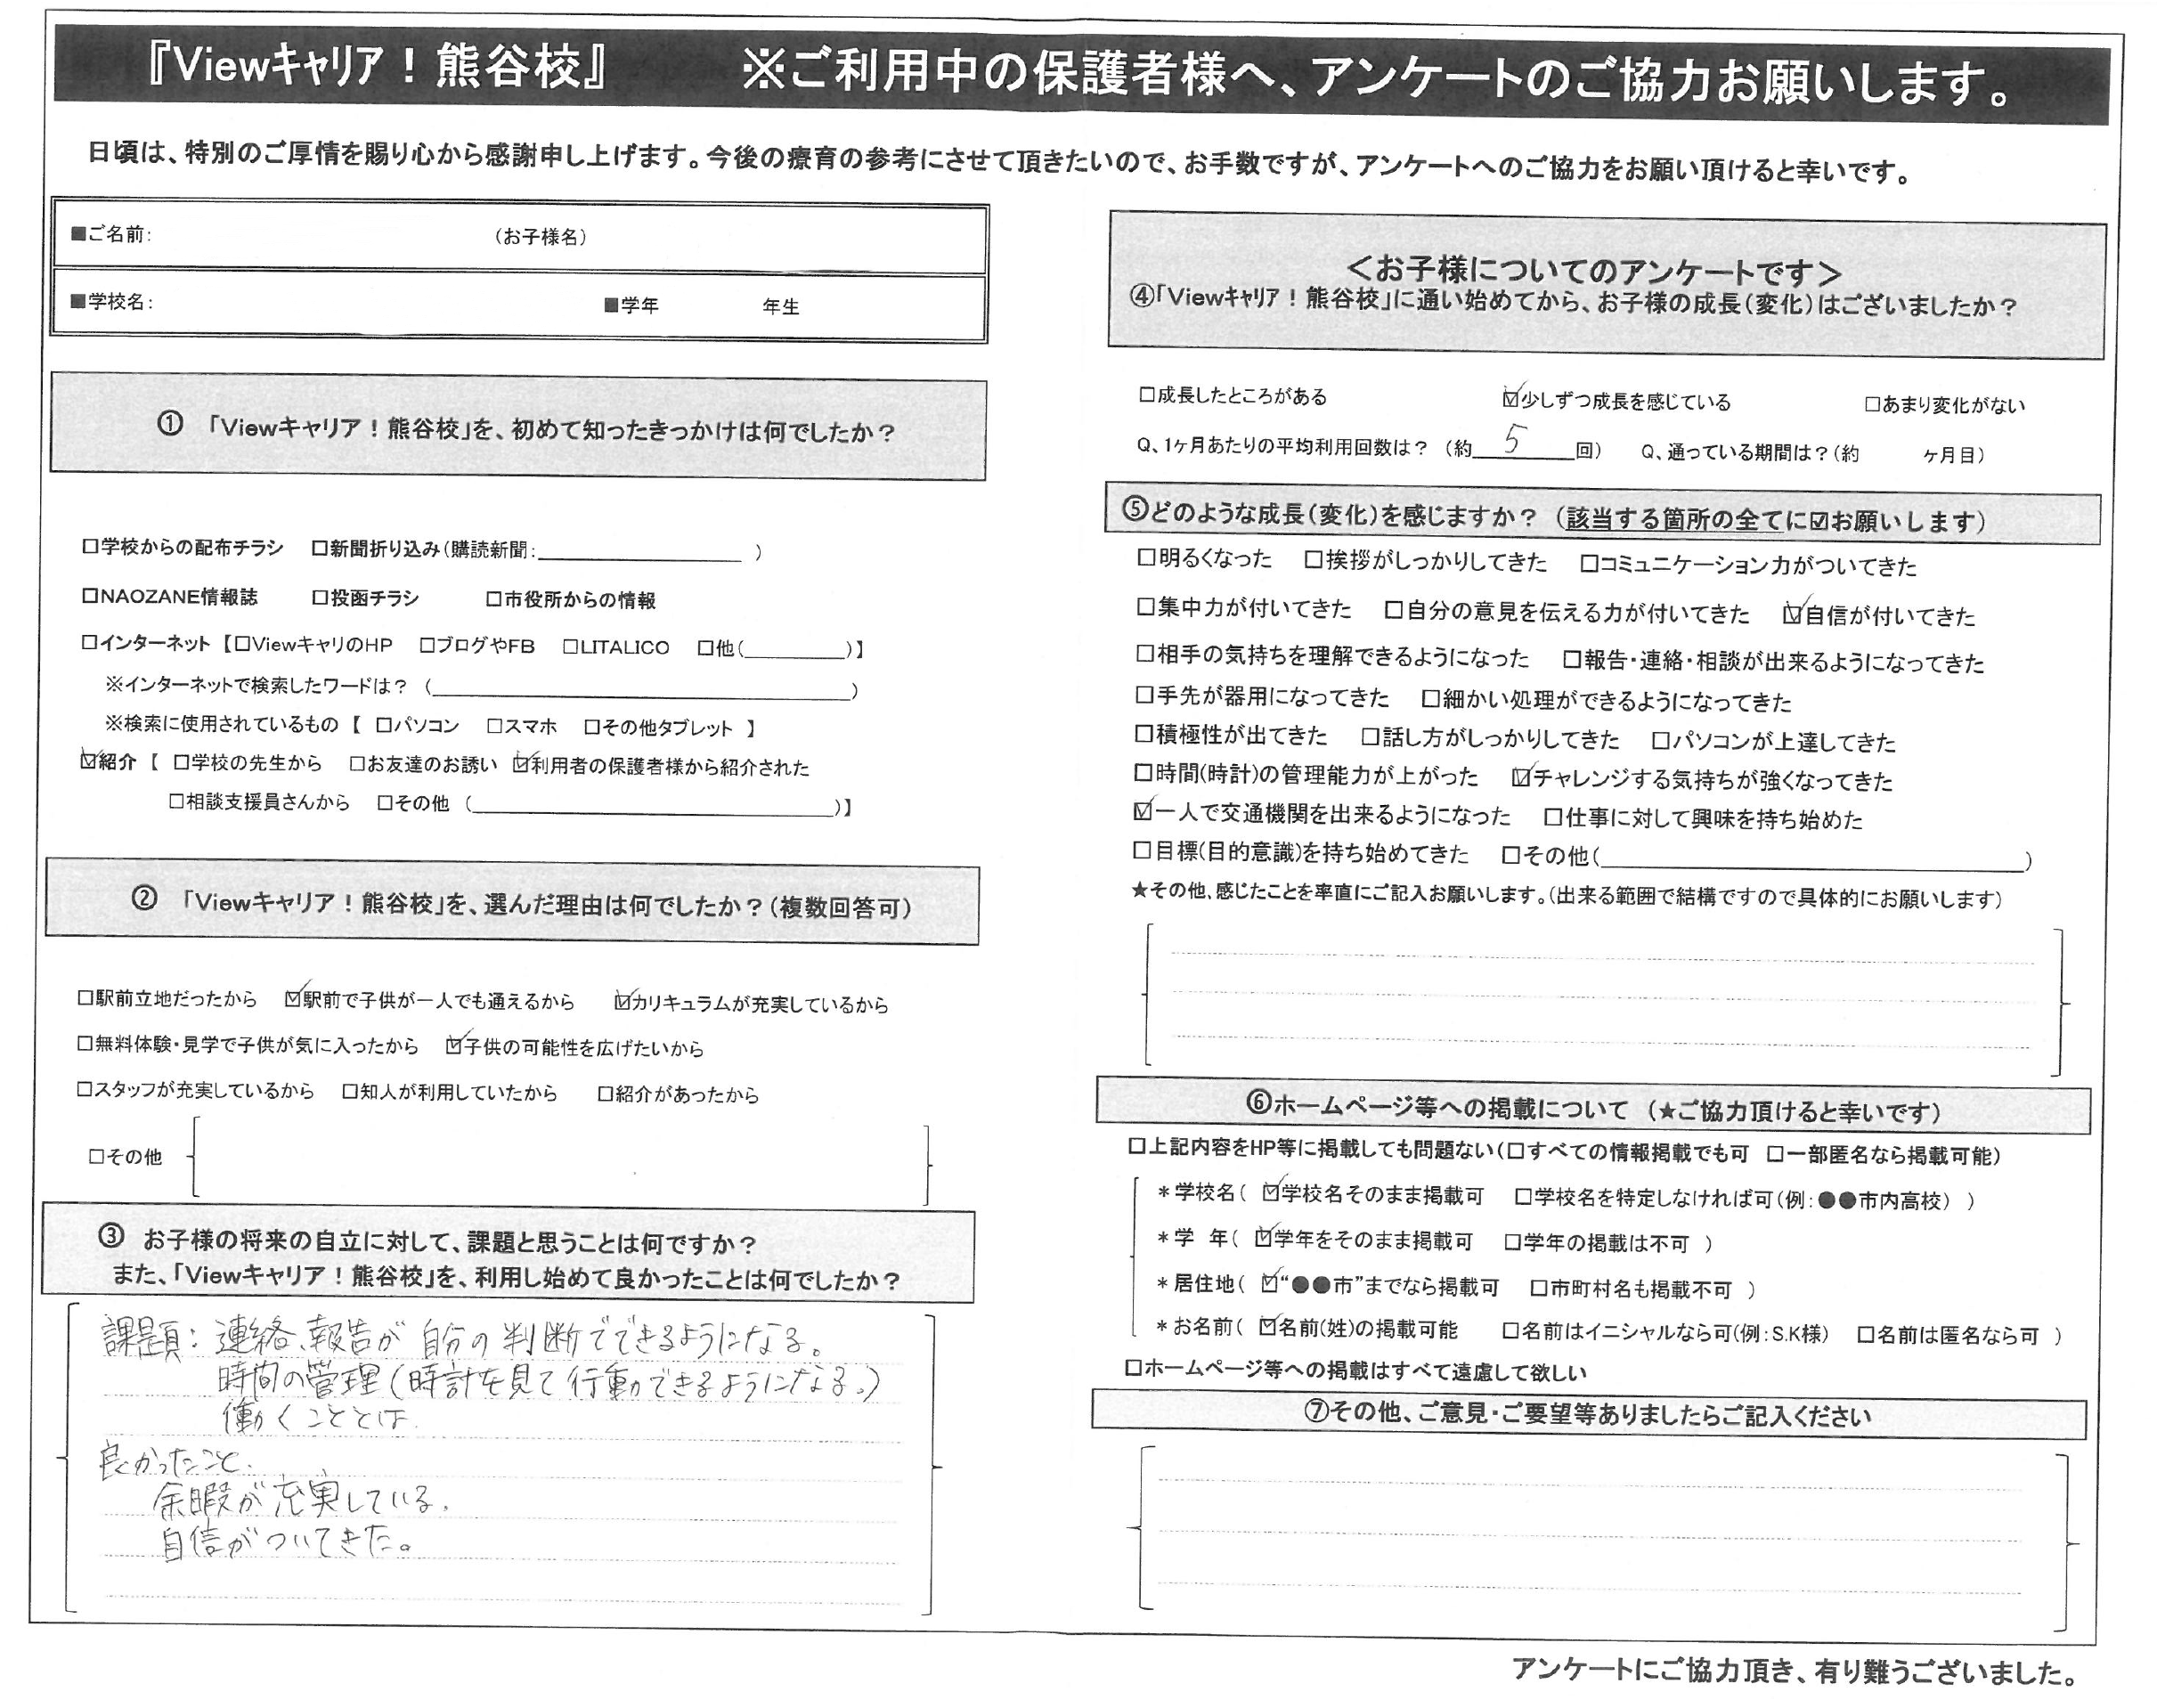 『Viewキャリア！熊谷校』　※ご利用中の保護者様へ、アンケートのご協力お願いします。
日頃は、特別のご厚情を賜り心から感謝申し上げます。今後の療育の参考にさせて頂きたいので、お手数ですが、アンケートへのご協力をお願い頂けると幸いです。
■ご名前：　（お子様名）
■学校名：　■学年　年生
①　「Viewキャリア！熊谷校」を、初めて知ったきっかけは何でしたか？
□学校からの配布チラシ　□新聞折り込み（購読新聞：＿＿＿＿＿＿）
□NAOZANE情報誌　□投函チラシ　□市役所からの情報
□インターネット【□ViewキャリのHP　□ブログやFB　□LITALICO　□他（＿＿＿＿）】
※インターネットで検索したワードは？（＿＿＿＿＿＿＿＿＿＿）
※検索に使用されているもの【　□パソコン　□スマホ　□その他タブレット　】
☑紹介【　□学校の先生から　□お友達のお誘い　☑利用者の保護者様から紹介された
□相談支援員さんから　□その他（＿＿＿＿＿＿＿＿＿＿）】
②　「Viewキャリア！熊谷校」を、選んだ理由は何でしたか？（複数回答可）
□駅前立地だったから　☑駅前で子供が一人でも通えるから　☑カリキュラムが充実しているから
□無料体験・見学で子供が気に入ったから　☑子供の可能性を広げたいから
□スタッフが充実しているから　□知人が利用していたから　□紹介があったから
□その他
③　お子様の将来の自立に対して、課題と思うことは何ですか？
また、「Viewキャリア！熊谷校」を、利用し始めて良かったことは何でしたか？
課題：連絡、報告が自分の判断でできるようになる。
時間の管理（時計を見て行動できるようになる。）
働くこととは
良かったこと、
余暇が充実している。
自信がついてきた。
＜お子様についてのアンケートです＞
④「Viewキャリア！熊谷校」に通い始めてから、お子様の成長（変化）はございましたか？
□成長したところがある　☑少しずつ成長を感じている　□あまり変化がない
Q、1ヶ月あたりの平均利用回数は？（約　5　回）　Q、通っている期間は？（約　ヶ月目）
⑤どのような成長（変化）を感じますか？（該当する箇所の全てに☑お願いします）
□明るくなった　□挨拶がしっかりしてきた　□コミュニケーション力がついてきた
□集中力が付いてきた　□自分の意見を伝える力が付いてきた　☑自信が付いてきた
□相手の気持ちを理解できるようになった　□報告・連絡・相談が出来るようになってきた
□手先が器用になってきた　□細かい処理ができるようになってきた
□積極性が出てきた　□話し方がしっかりしてきた　□パソコンが上達してきた
□時間（時計）の管理能力が上がった　☑チャレンジする気持ちが強くなってきた
☑一人で交通機関を出来るようになった　□仕事に対して興味を持ち始めた
□目標（目的意識）を持ち始めてきた　□その他（＿＿＿＿＿＿＿＿＿＿）
★その他、感じたことを率直にご記入お願いします。（出来る範囲で結構ですので具体的にお願いします）
⑥ホームページ等への掲載について　（★ご協力頂けると幸いです）
□上記内容をHP等に掲載しても問題ない（□すべての情報掲載でも可　□一部匿名なら掲載可能）
＊学校名（　☑学校名そのまま掲載可　□学校名を特定しなければ可（例：●●市内高校）　）
＊学　年（　☑学年をそのまま掲載可　□学年の掲載は不可　）
＊居住地（　☑“●●市”までなら掲載可　□市町村名も掲載不可　）
＊お名前（　☑名前（姓）の掲載可能　□名前はイニシャルなら可（例：S.K様）　□名前は匿名なら可　）
□ホームページ等への掲載はすべて遠慮して欲しい
⑦その他、ご意見・ご要望等ありましたらご記入ください
アンケートにご協力頂き、有り難うございました。